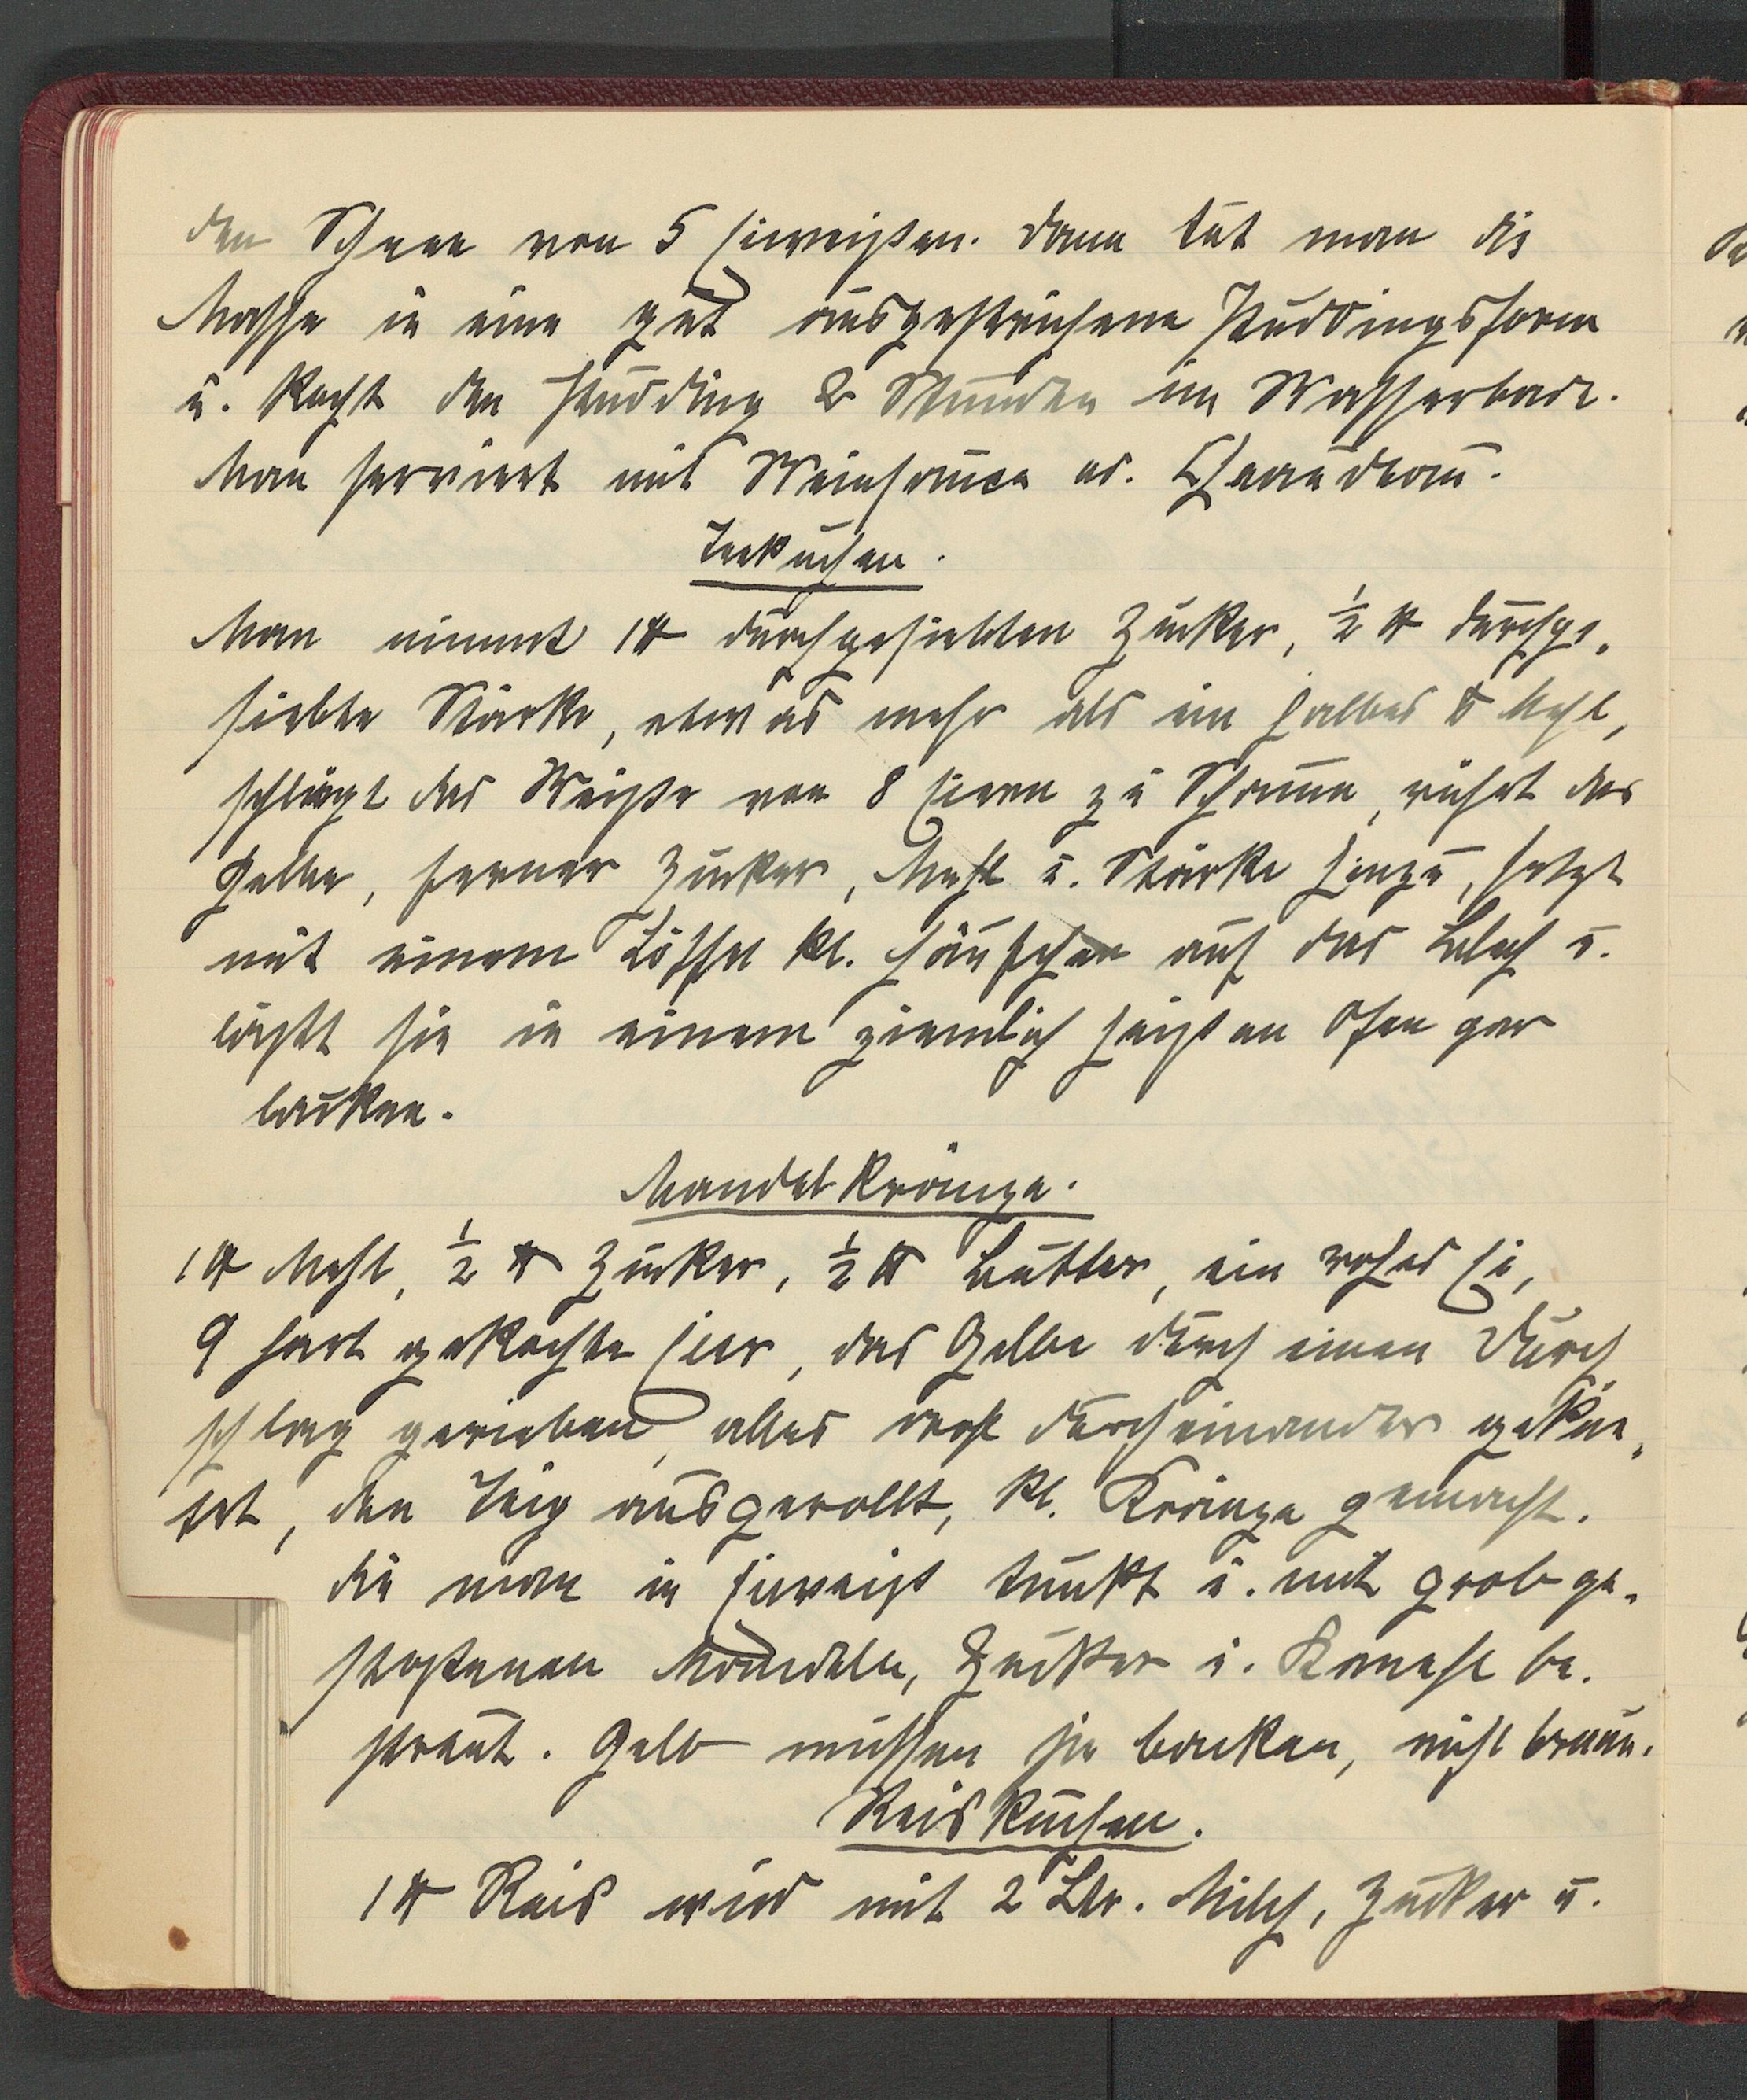 den Schnee von 5 Eiweißen. Dann tut man die
Masse in eine gut ausgestrichene Puddingsform
u. kocht den Pudding 2 Stunden im Wasserbade.
Man serviert mit Weinsauce od. Chaaudeau.
Teekuchen.
Man nimmt 1 ℔ durchgesiebten Zucker, ½ ℔ durchge-
siebte Stärke, etwas mehr als ein halbes ℔ Mehl,
schlägt das Weiße von 8 Eiern zu Schaum, rührt das
Gelbe, ferner Zucker, Mehl u. Stärke hinzu, setzt
mit einem Löffel kl. Häufchen auf das Blech u.
läßt sie in einem ziemlich heißen Ofen gar
backen.
Mandelkränze.
1 ℔ Mehl, ½ ℔ Zucker, ½ ℔ Butter, ein rohes Ei,
9 hart gekochte Eier, das Gelbe durch einen Durch
schlag gerieben, alles wohl durcheinander gekne-
tet, den Teig ausgerollt, kl. Kränze gemacht.
die man in Eiweiß tunkt u. mit grob ge-
stoßenen Mandeln, Zucker u. Kaneel be-
streut. Gelb müssen sie backen, nicht braun.
Reiskuchen.
1 ℔ Reis wird mit 2 Ltr. Milch, Zucker u.